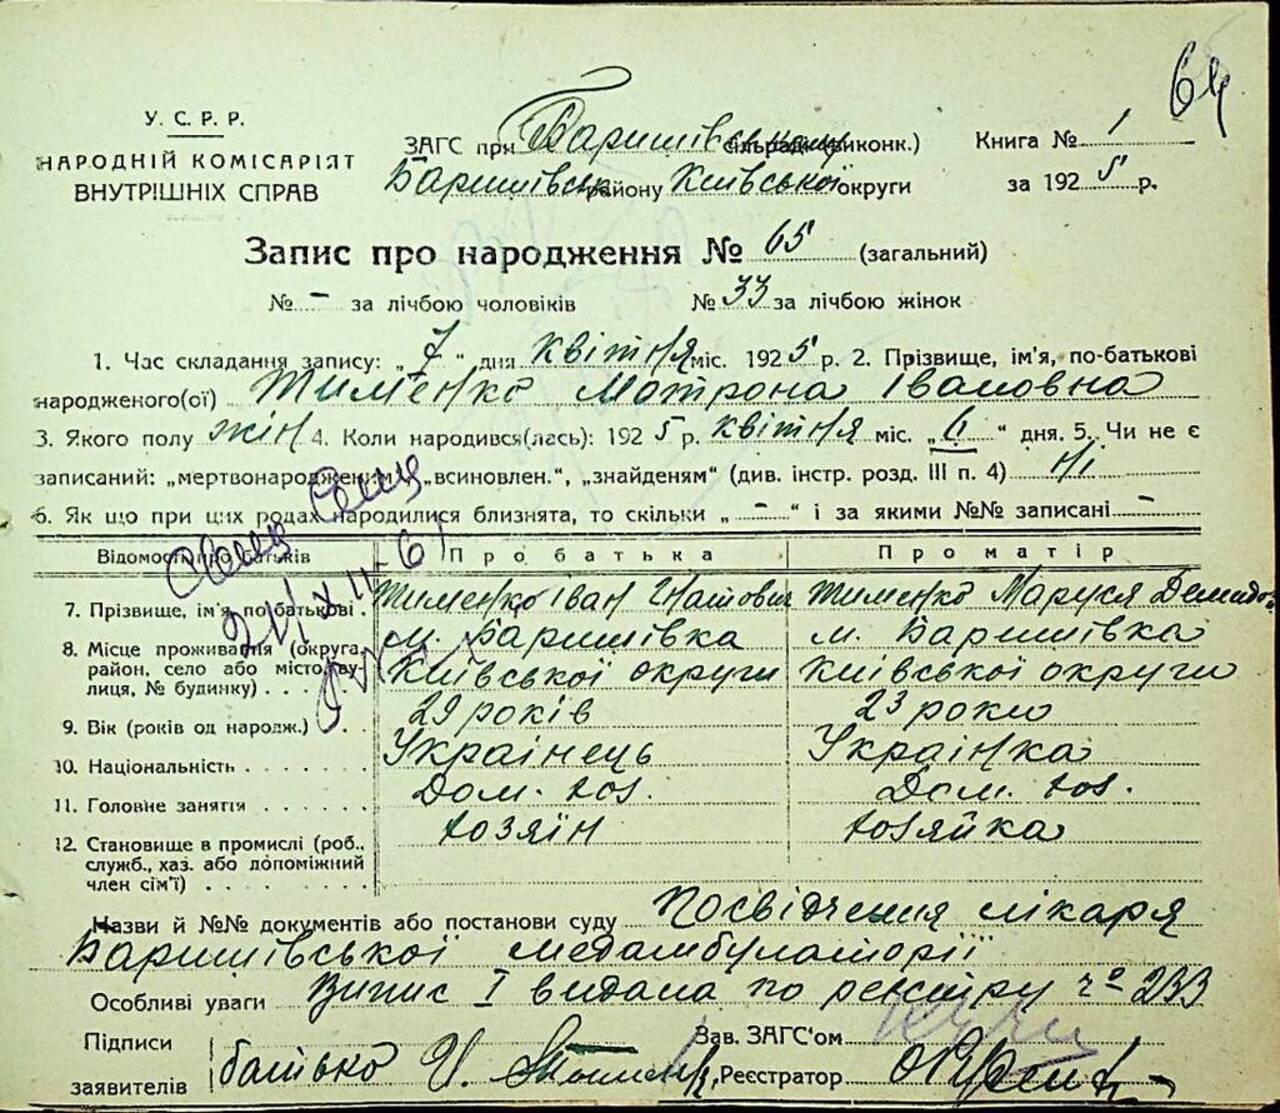 64
У. С. Р. Р.
НАРОДНІЙ КОМІСАРІЯТ
ВНУТРІШНІХ СПРАВ
ЗАГС при Баришівськ
Баришівськ району Київської округи
Книга № 1
за 1925 р.
Запис про народження № 65 (загальний)
№ – за лічбою чоловіків № 33 за лічбою жінок
1. Час складання запису: „7“ дня квітня міс. 1925 р. 2. Прізвище, ім'я, по-батькові
народженого(ої) Тименко Мотрона Івановна
3. Якого полу жін 4. Коли народився(лась): 1925 р. квітня міс. „6“ дня. 5. Чи не є
записаний: „мертвонародженим“, „всиновлен.“, „знайденям“ (див. інстр. розд. III п. 4) Ні
6. Як що при цих родах народилися близнята, то скільки „–“ і за якими №№ записані –
Відомості про батьків Про батька Про матір
7. Прізвище, ім'я, по-батькові. Тименко Іван Тименко Маруся Демидо
8. Місце проживання (округа, м. Баришівка м. Баришівка
район, село або місто, ву- Київської округи Київської округи
лиця, № будинку) . . . .
9. Вік (років од народж.) . . . 29 років 23 роки
10. Національність . . . . . . . Українець Українка
11. Головне заняття . . . . . . Дом. хоз. Дом. хоз.
12. Становище в промислі (роб., хозяїн хозяйка
служб., хаз. або допоміжний
член сім'ї) . . . . . . . . .
Назви й №№ документів або постанови суду Посвідчення лікаря
Баришівської медамбулаторії
Особливі уваги Випис I видана по реєстру № 233
Підписи Зав. ЗАГС'ом
заявителів батько И. Реєстратор